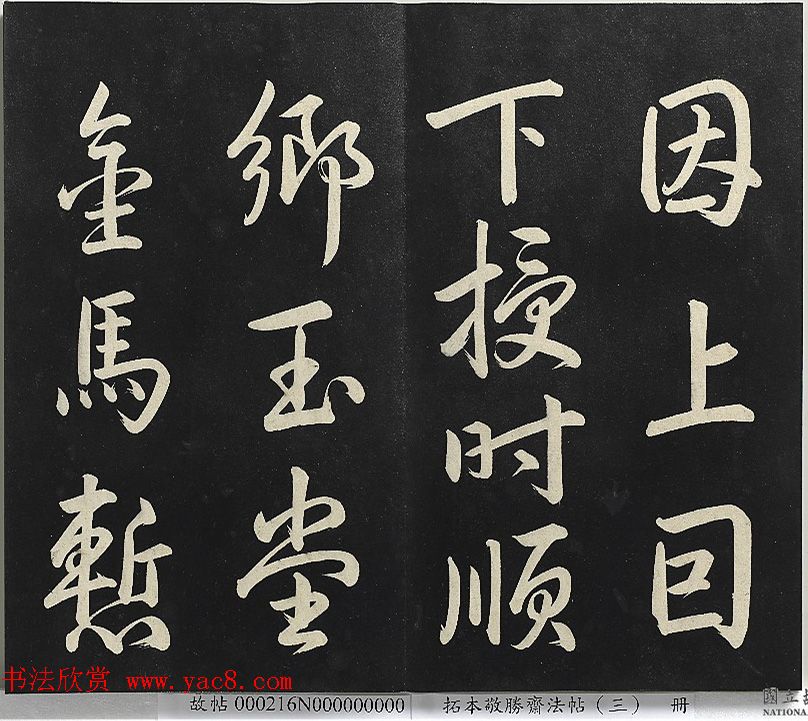 因上回
下授时顺
鄉玉堂
金馬慙
书法欣赏 www.yac8.com
故帖 000216N000000000
拓本敬勝齋法帖（三） 册
國立
NATIONAL